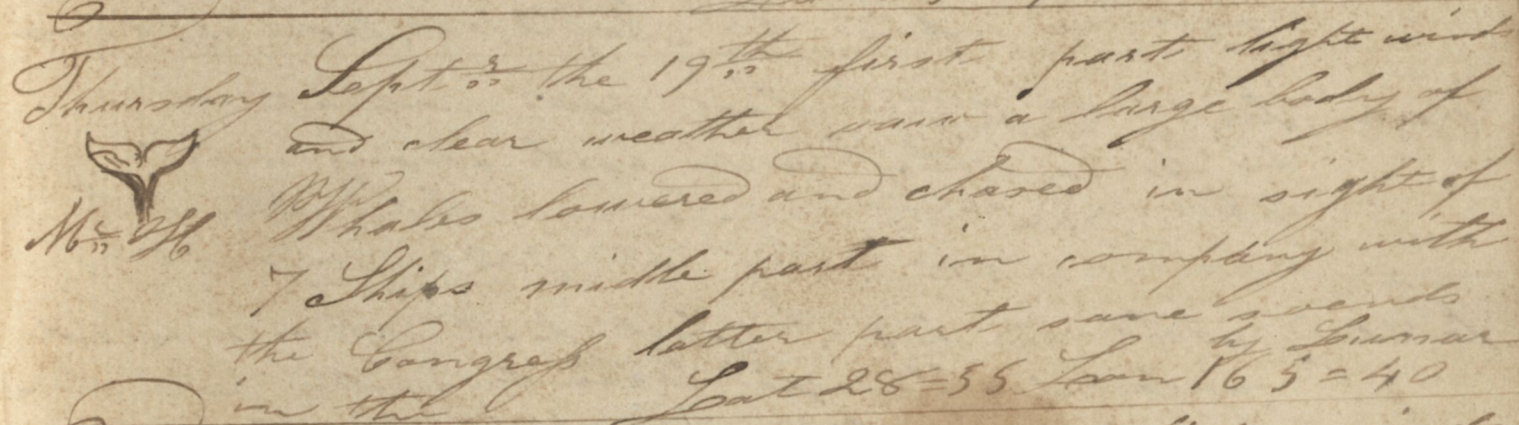 Thursday Septr the 19th first part light wind
and clear weather saw a large body of
Mr H Whales lowered and chased in sight of
7 Ships middle part in company with
the Congress latter part same
by Lunar
in the Lat 28=55 Lon 165=40